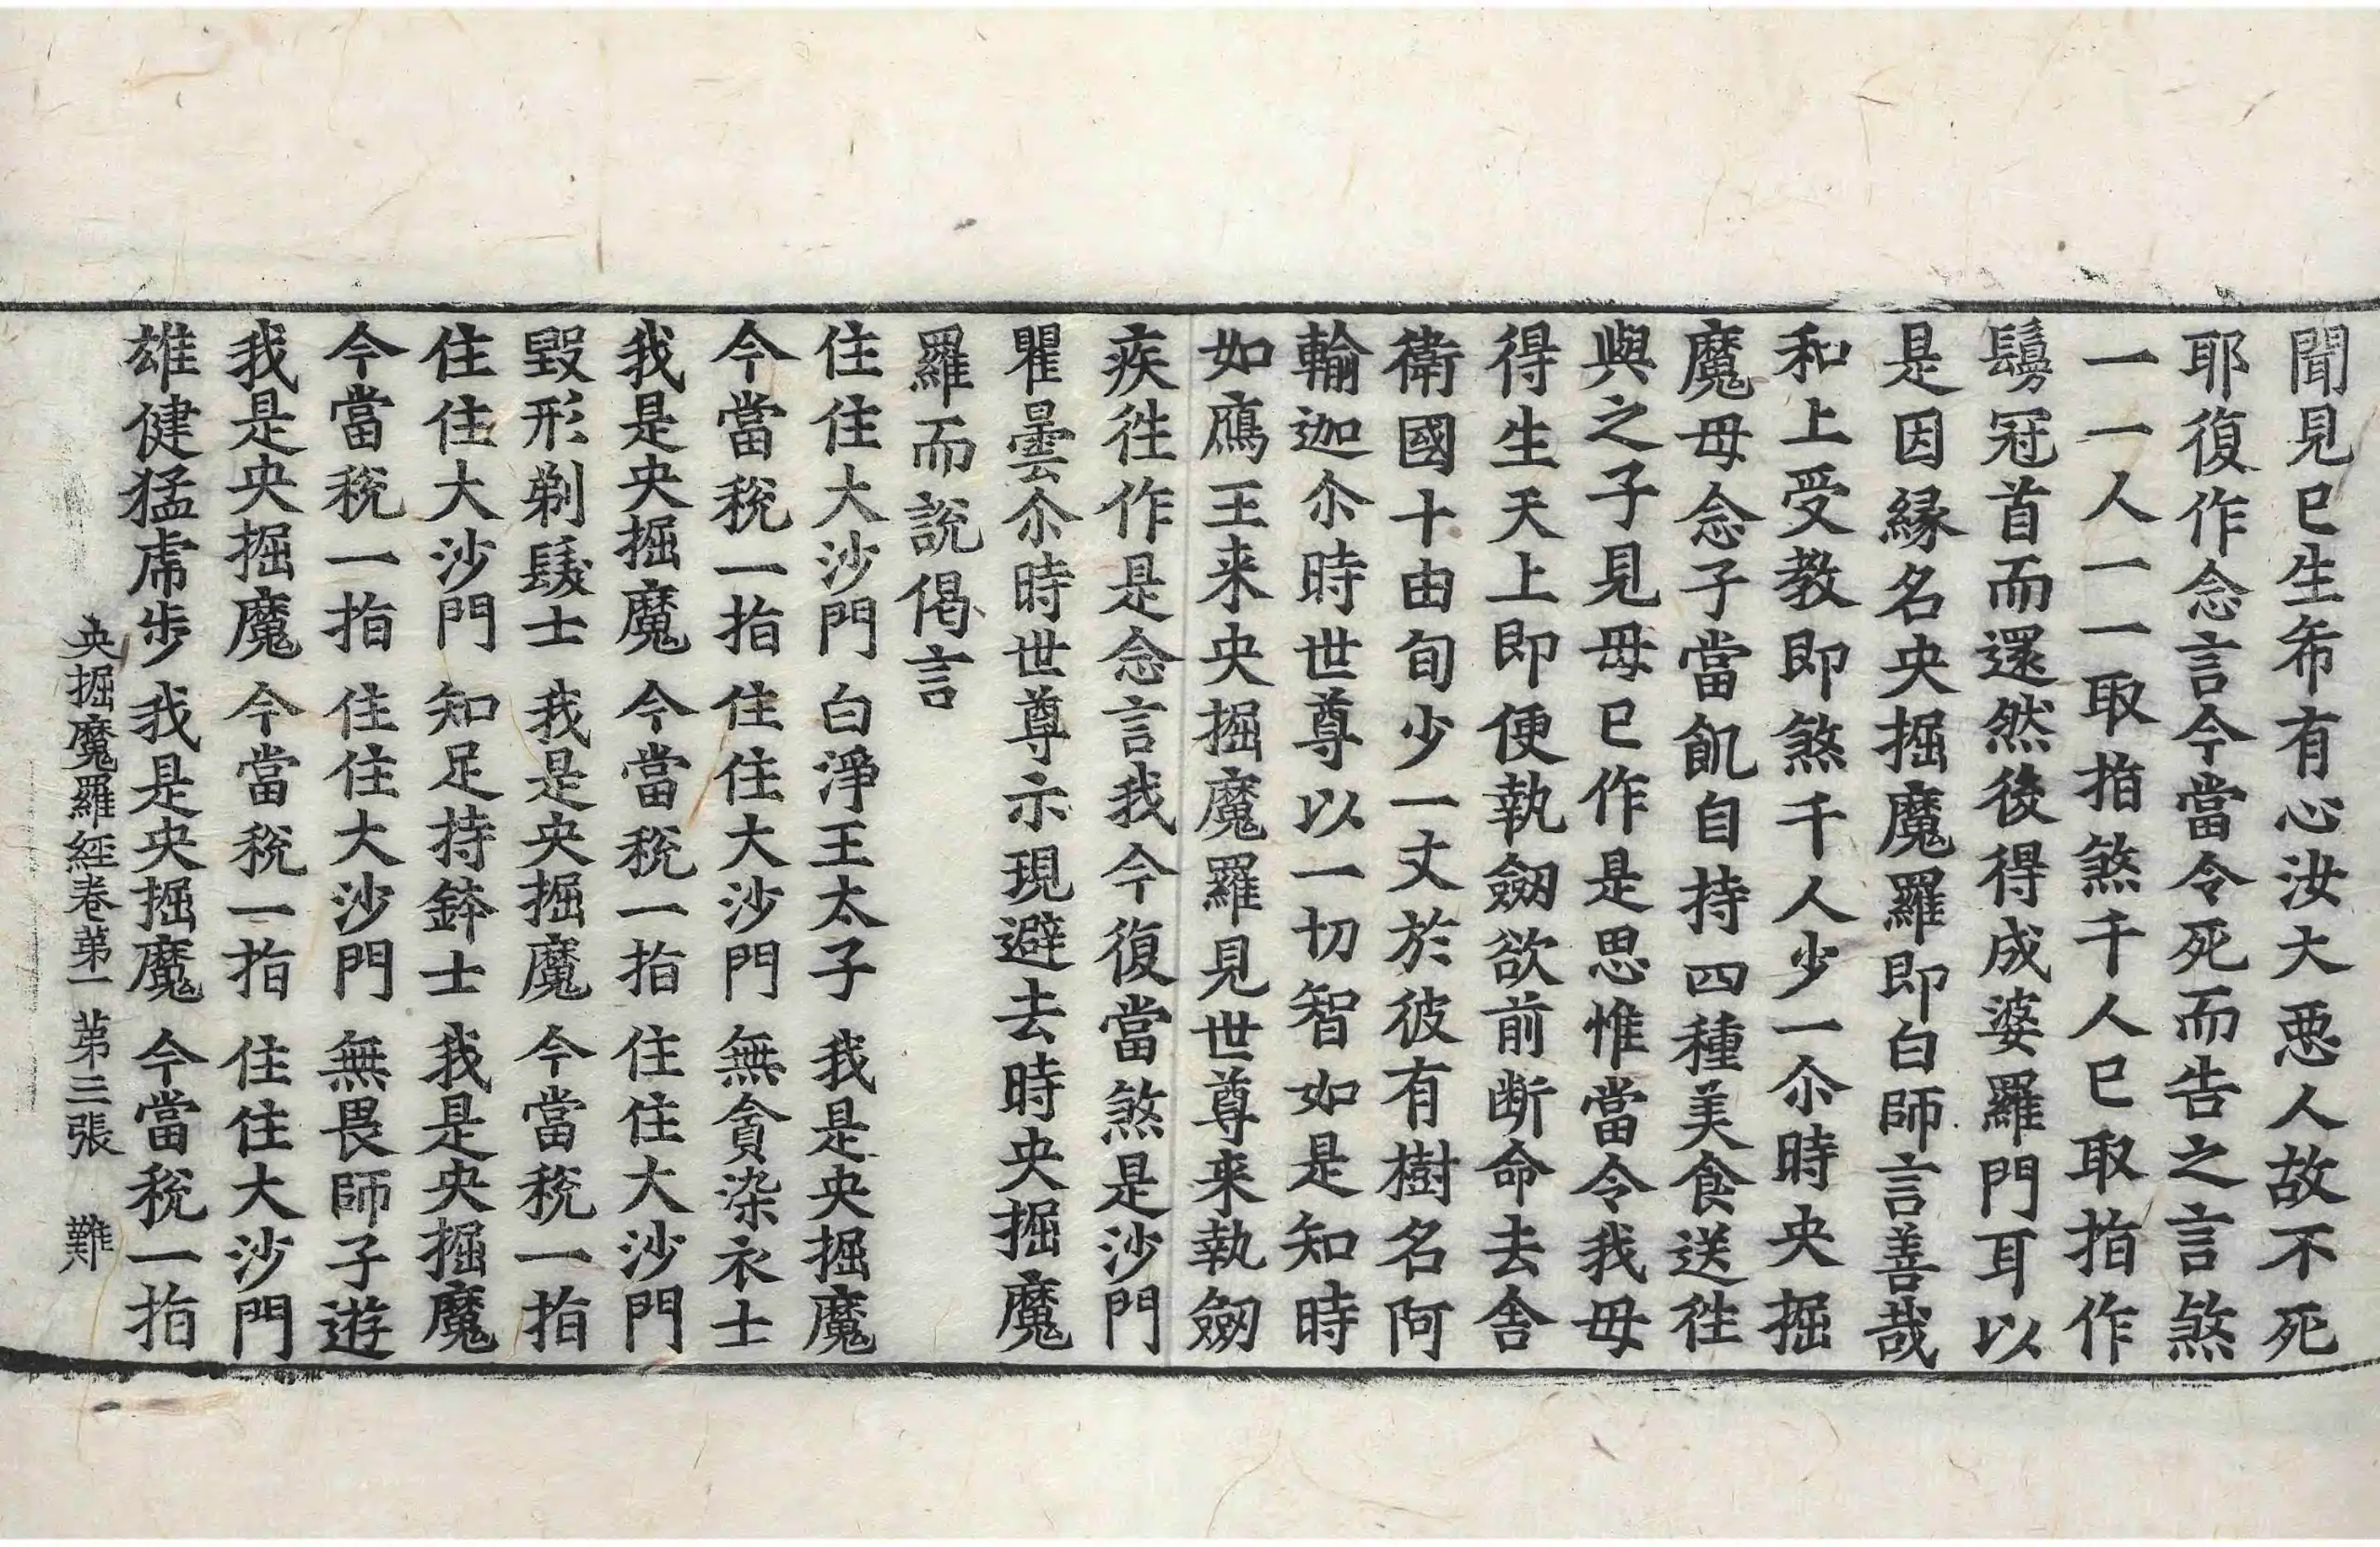 聞見已生希有心汝大惡人故不死
耶復作念言今當令死而告之言煞
一一人一一取指煞千人已取指作
鬘冠首而還然後得成婆羅門耳以
是因緣名央掘魔羅即白師言善哉
和上受教即煞千人少一尒時央掘
魔母念子當飢自持四種美食送徃
與之子見母已作是思惟當令我母
得生天上即便執劒欲前断命去舍
衛國十由旬少一丈於彼有樹名阿
輸迦尒時世尊以一切智如是知時
如鴈王来央掘魔羅見世尊来執劒
疾徃作是念言我今復當煞是沙門
瞿曇尒時世尊示現避去時央掘魔
羅而說偈言
住住大沙門　白淨王太子　我是央掘魔
今當稅一指　住住大沙門　無貪染衣士
我是央掘魔　今當稅一指　住住大沙門
毀形剃髮士　我是央掘魔　今當稅一指
住住大沙門　知足持鉢士　我是央掘魔
今當稅一指　住住大沙門　無畏師子遊
我是央掘魔　今當稅一指　住住大沙門
雄健猛虎步　我是央掘魔　今當稅一指
央掘魔羅經卷第一　第三張　難